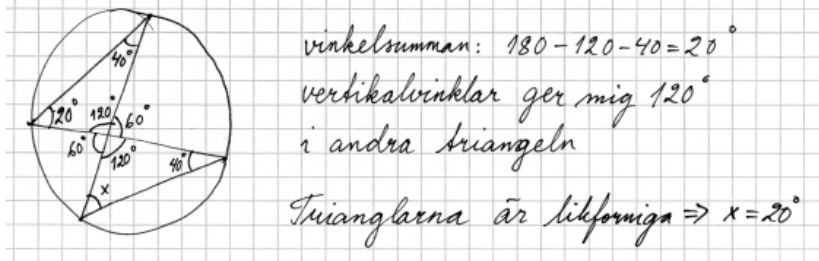 40°
20°
120°
60°
60°
120°
40°
x
vinkelsumman: 180-120-40=20°
vertikalvinklar ger mig 120°
i andra triangeln
Trianglarna är likformiga => x=20°